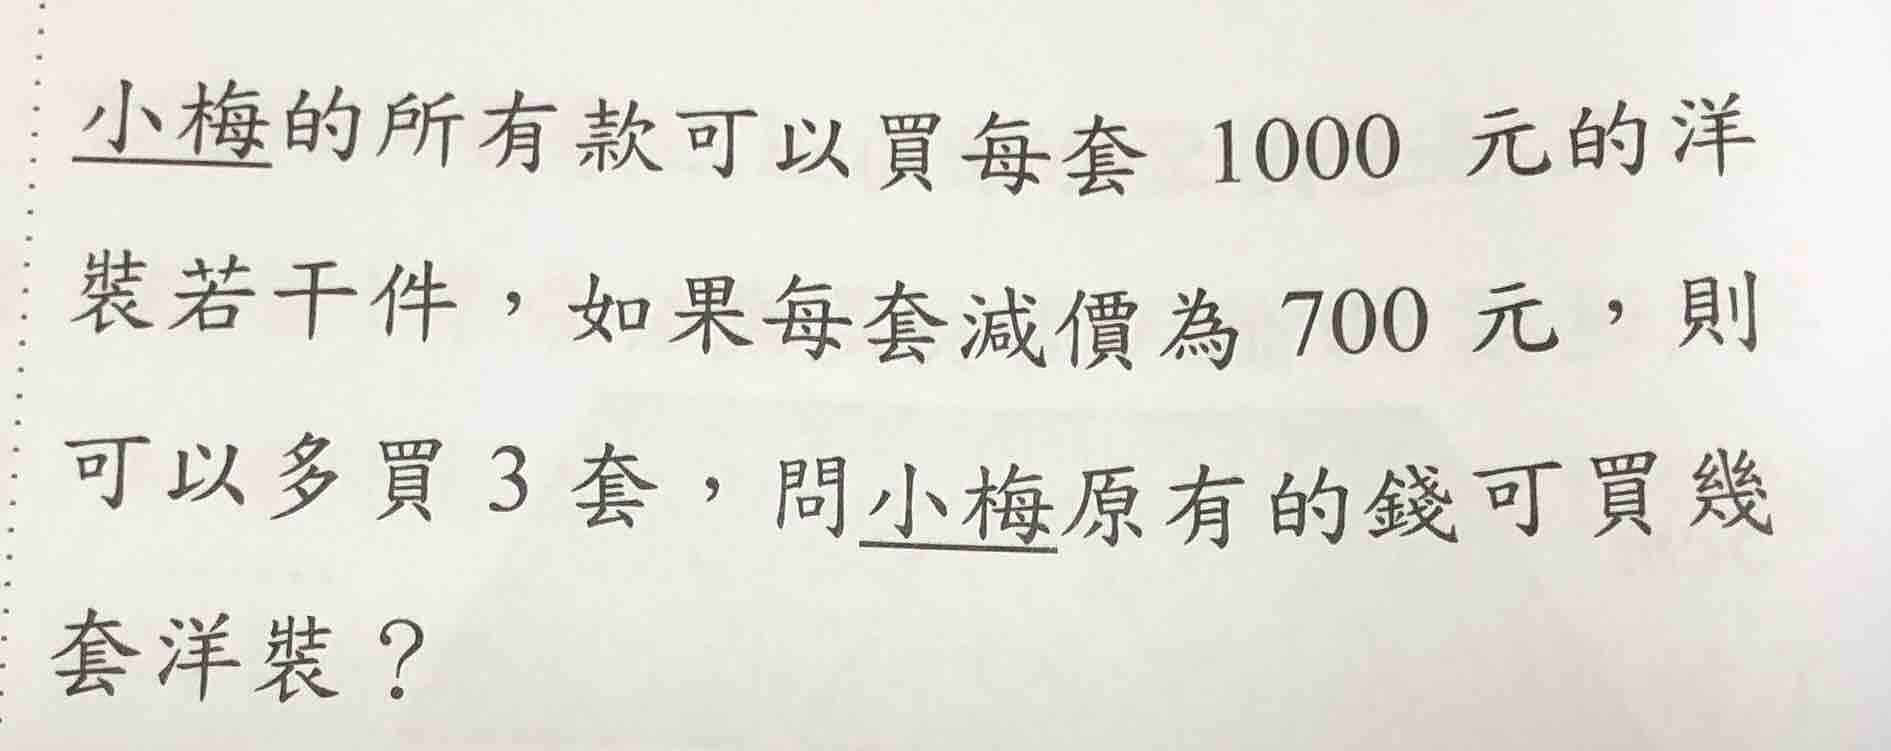 小梅的所有款可以買每套 1000 元的洋
裝若干件，如果每套減價為 700 元，則
可以多買 3 套，問小梅原有的錢可買幾
套洋裝？